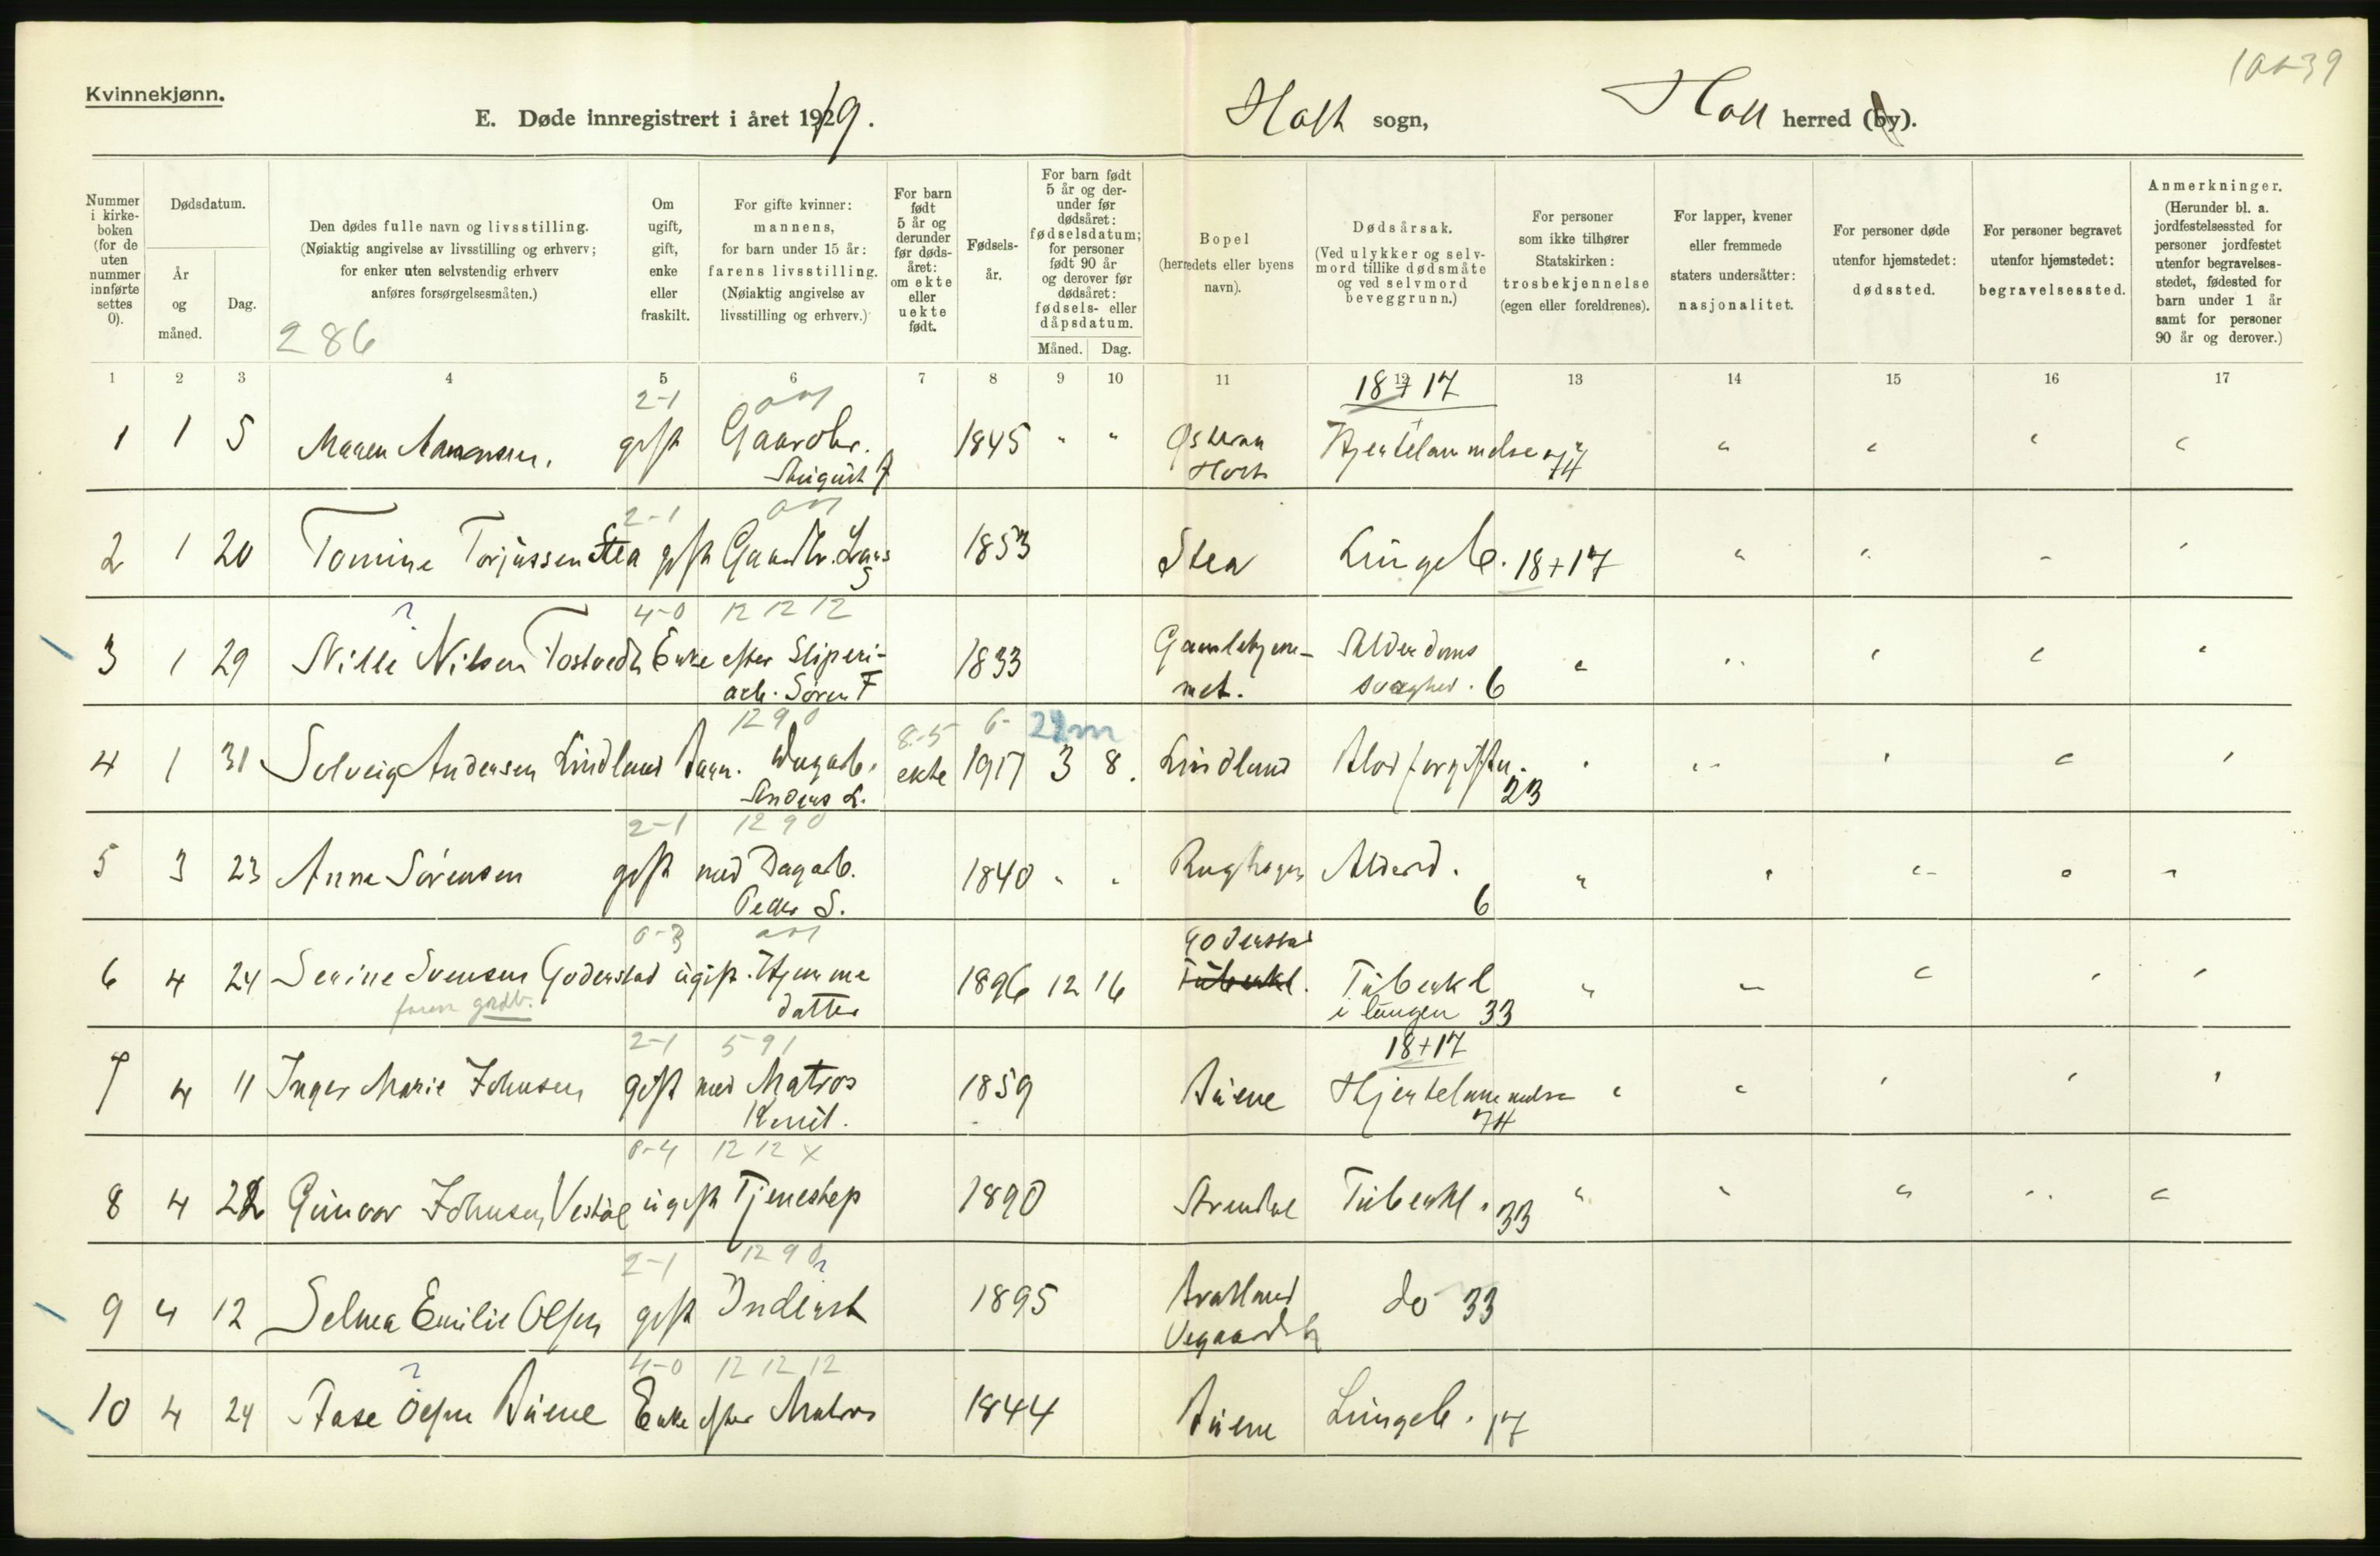 Kvinnekjønn.
E. Døde innregistrert i året 1919.
Holt sogn,
Holt herred (by).
Nummer i kirke-boken (for de uten nummer innførte settes 0).
Dødsdatum.
År og måned.
Dag.
Den dødes fulle navn og livsstilling.
(Nøiaktig angivelse av livsstilling og erhverv;
for enker uten selvstendig erhverv
anføres forsørgelsesmåten.)
286
Om ugift, gift, enke eller fraskilt.
For gifte kvinner:
mannens,
for barn under 15 år:
farens livsstilling.
(Nøiaktig angivelse av
livsstilling og erhverv.)
For barn født 5 år og derunder før døds-året: om ekte eller uekte født.
Fødsels-år.
For barn født 5 år og der-under før dødsåret: fødselsdatum; for personer født 90 år og derover før dødsåret: fødsels- eller dåpsdatum.
Måned. Dag.
Bopel
(herredets eller byens
navn).
Dødsårsak.
(Ved ulykker og selv-
mord tillike dødsmåte
og ved selvmord
beveggrunn.)
For personer
som ikke tilhører
Statskirken:
trosbekjennelse
(egen eller foreldrenes).
For lapper, kvener
eller fremmede
staters undersåtter:
nasjonalitet.
For personer døde
utenfor hjemstedet:
dødssted.
For personer begravet
utenfor hjemstedet:
begravelsessted.
Anmerkninger.
(Herunder bl. a.
jordfestelsessted for
personer jordfestet
utenfor begravelses-
stedet, fødested for
barn under 1 år
samt for personer
90 år og derover.)
1 2 3 4 5 6 7 8 9 10 11 12 13 14 15 16 17
2-1 18+17
1 1 5 Maren gift Gaardbr. 1845 " " Hjertelammelse 74
August
2-1
2 1 20 Tomine Torjussen Stea gift Gaardbr. Lars 1853 Stea Lungeb. 18+17
S
4-0 12 12 12
3 1 29 Nille Nilsen Tostvedt Enke efter Sliperi- 1833 Gamlehjem- Alderdoms
arb. Søren T met. svaghed. 6
12 9 0 8-5 6- 22m
4 1 31 Solveig Andersen Lindland barn. Dagarb. ekte 1917 3 8. Lindland Blodforgiftn.
Anders L. 23
2-1 12 9 0
5 3 23 Anne Sørensen gift med Dagarb. 1840 " " Alderd.
Peder S. 6
0-3 Goderstad
6 4 24 Serine Svensen Goderstad ugift. Hjemme 1896 12 16 Tuberkl. Tuberkl
faren grdbr. datter i lungen 33
2-1 5 9 1 18+17
7 4 11 Inger Marie Johnsen gift med Matros 1859 Buene Hjertelammelse
Knut. 74
0-4 12 12 x
8 4 22 Gunvor Johnsen Vestøl ugift Tjenestep 1890 Arendal Tuberkl. 33
2-1 12 9 0
9 4 12 Selma Emilie Olsen gift Inderst 1895 do 33
Vegaardsh
4-0 12 12 12
10 4 24 Aase Olsen Buene Enke efter Matros 1844 Buene Lungeb. 17